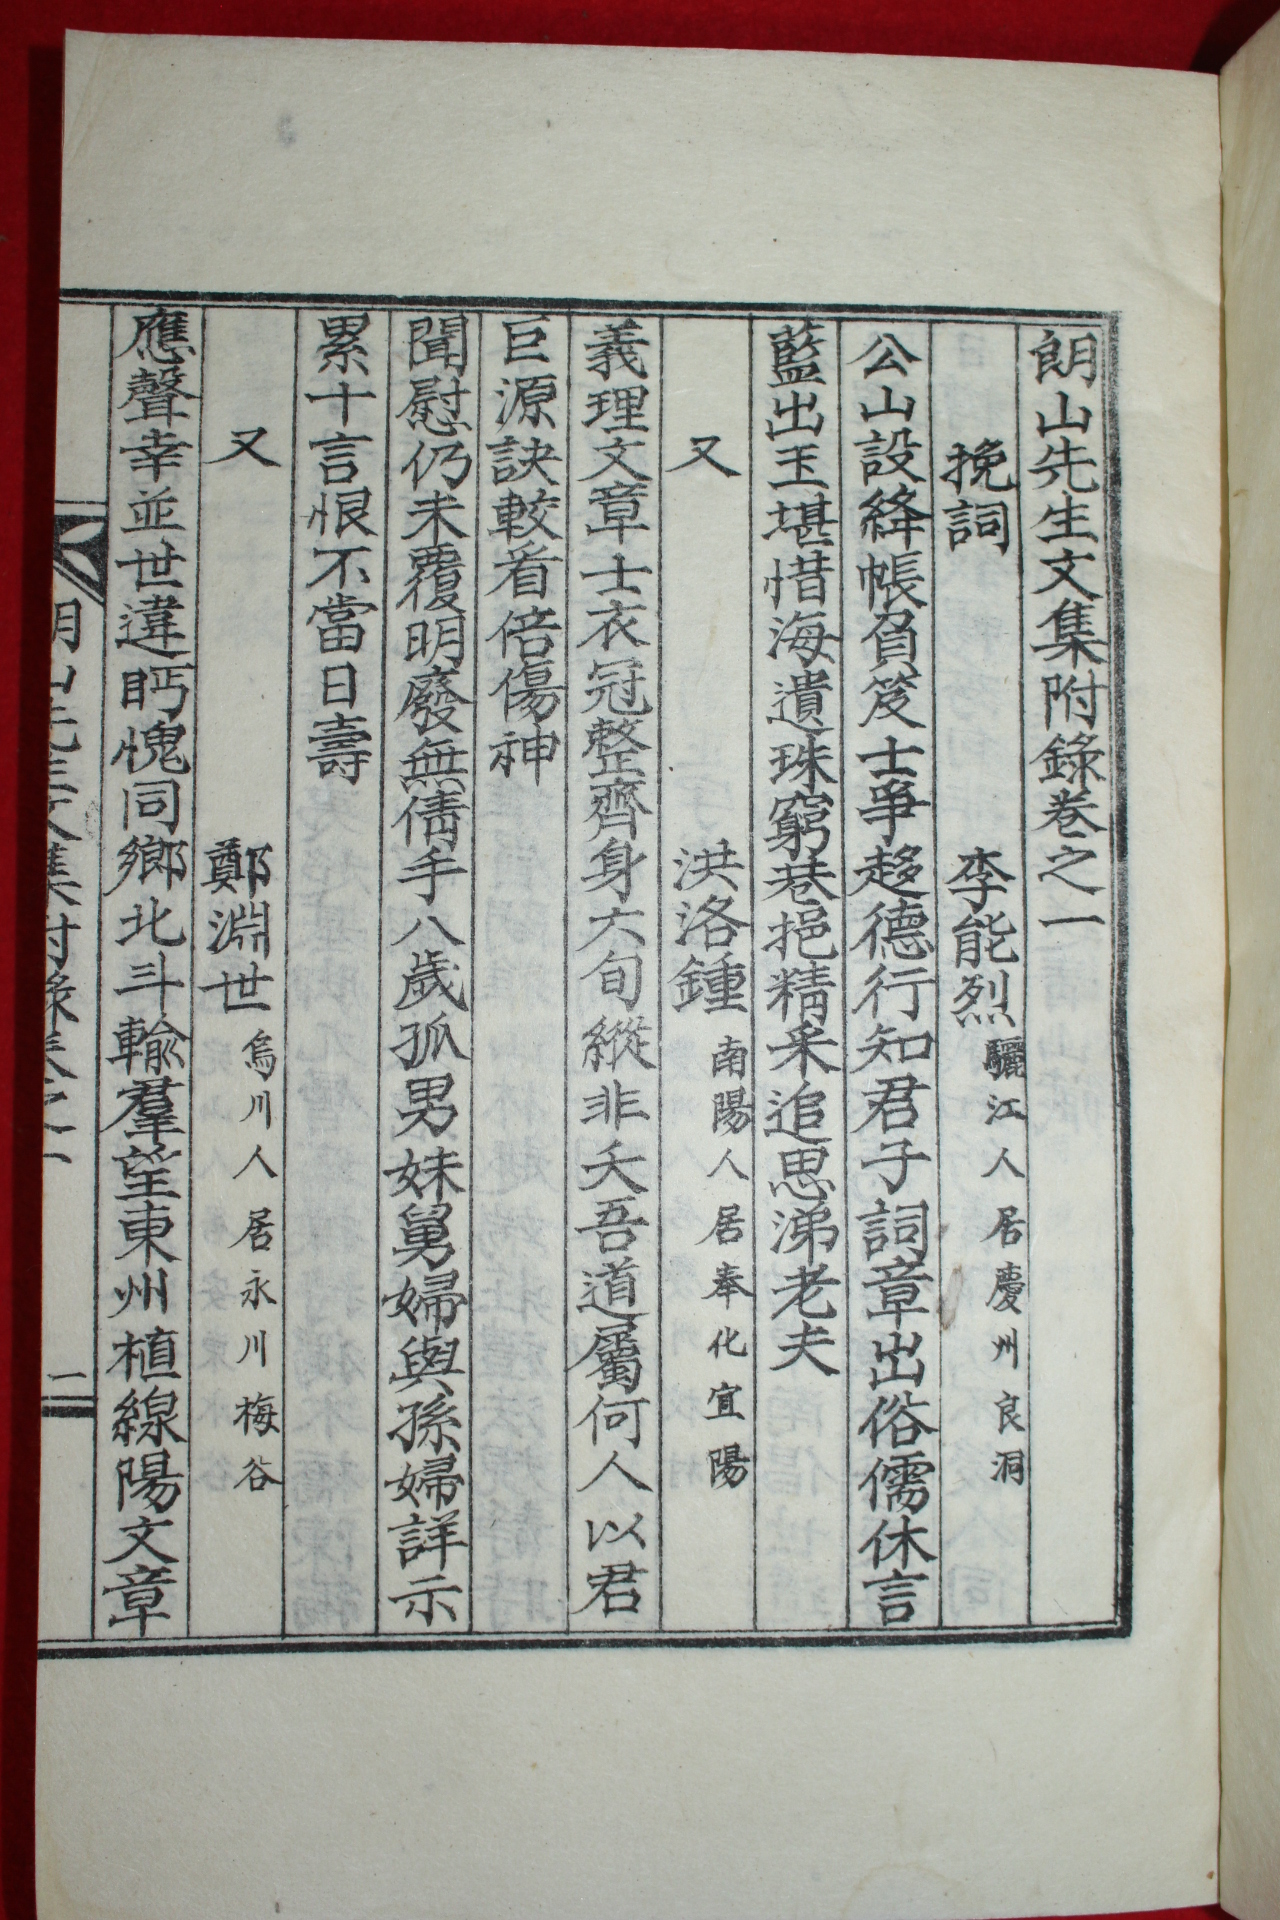 朗山先生文集附錄卷之一
挽詞 李能烈 驪江人居慶州良洞
公山設絳帳負笈士爭趍德行知君子詞章出俗儒休言
藍出玉堪惜海遺珠窮巷挹精采追思涕老夫
又 洪洛鍾 南陽人居奉化宜陽
義理文章士衣冠整齊身六旬縱非夭吾道屬何人以君
巨源訣較看倍傷神
聞慰仍未覆明廢無倩手八歲孤男妹舅婦與孫婦詳示
累十言恨不當日壽
又 鄭淵世 烏川人居永川梅谷
應聲幸並世違眄愧同鄉北斗輸羣望東州植線陽文章
朗山先生文集附錄卷之一 一